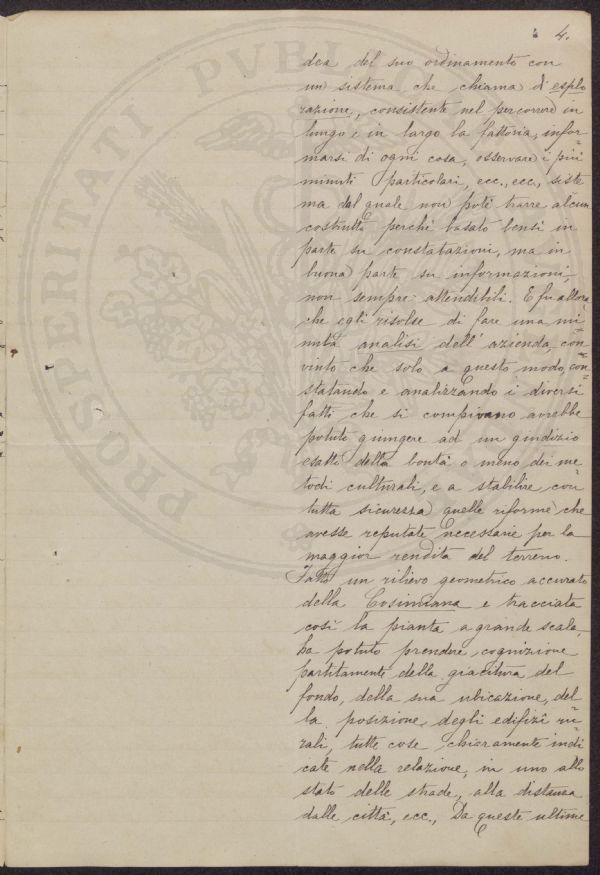 4.
dea del suo ordinamento con
un sistema che chiama di esplo
razione, consistente nel percorrere in
lungo e in largo la fattoria, infor=
marsi di ogni cosa, osservare i più
minuti particolari, ecc., ecc., siste
ma dal quale non potè trarre alcun
costrutto perchè basato bensì in
parte su constatazioni, ma in
buona parte su informazioni,
non sempre attendibili. E fu allora
che egli risolse di fare una mi=
nuta analisi dell'azienda, con=
vinto che solo a questo modo, con=
statando e analizzando i diversi
fatti che si compivano avrebbe
potuto giungere ad un giudizio
esatto della bontà o meno dei me=
todi culturali, e a stabilire con
tutta sicurezza quelle riforme che
avesse reputate necessarie per la
maggior rendita del terreno.
Fatto un rilievo geometrico accurato
della Cosimiana e tracciata
così la pianta a grande scala,
ha potuto prendere cognizione
partitamente della giacitura del
fondo, della sua ubicazione, del
la posizione degli edifizi ru=
rali, tutte cose chiaramente indi
cate nella relazione, in uno allo
stato delle strade, alla distanza
dalle città, ecc., Da queste ultime
PROSPERITATI PVBLICAE